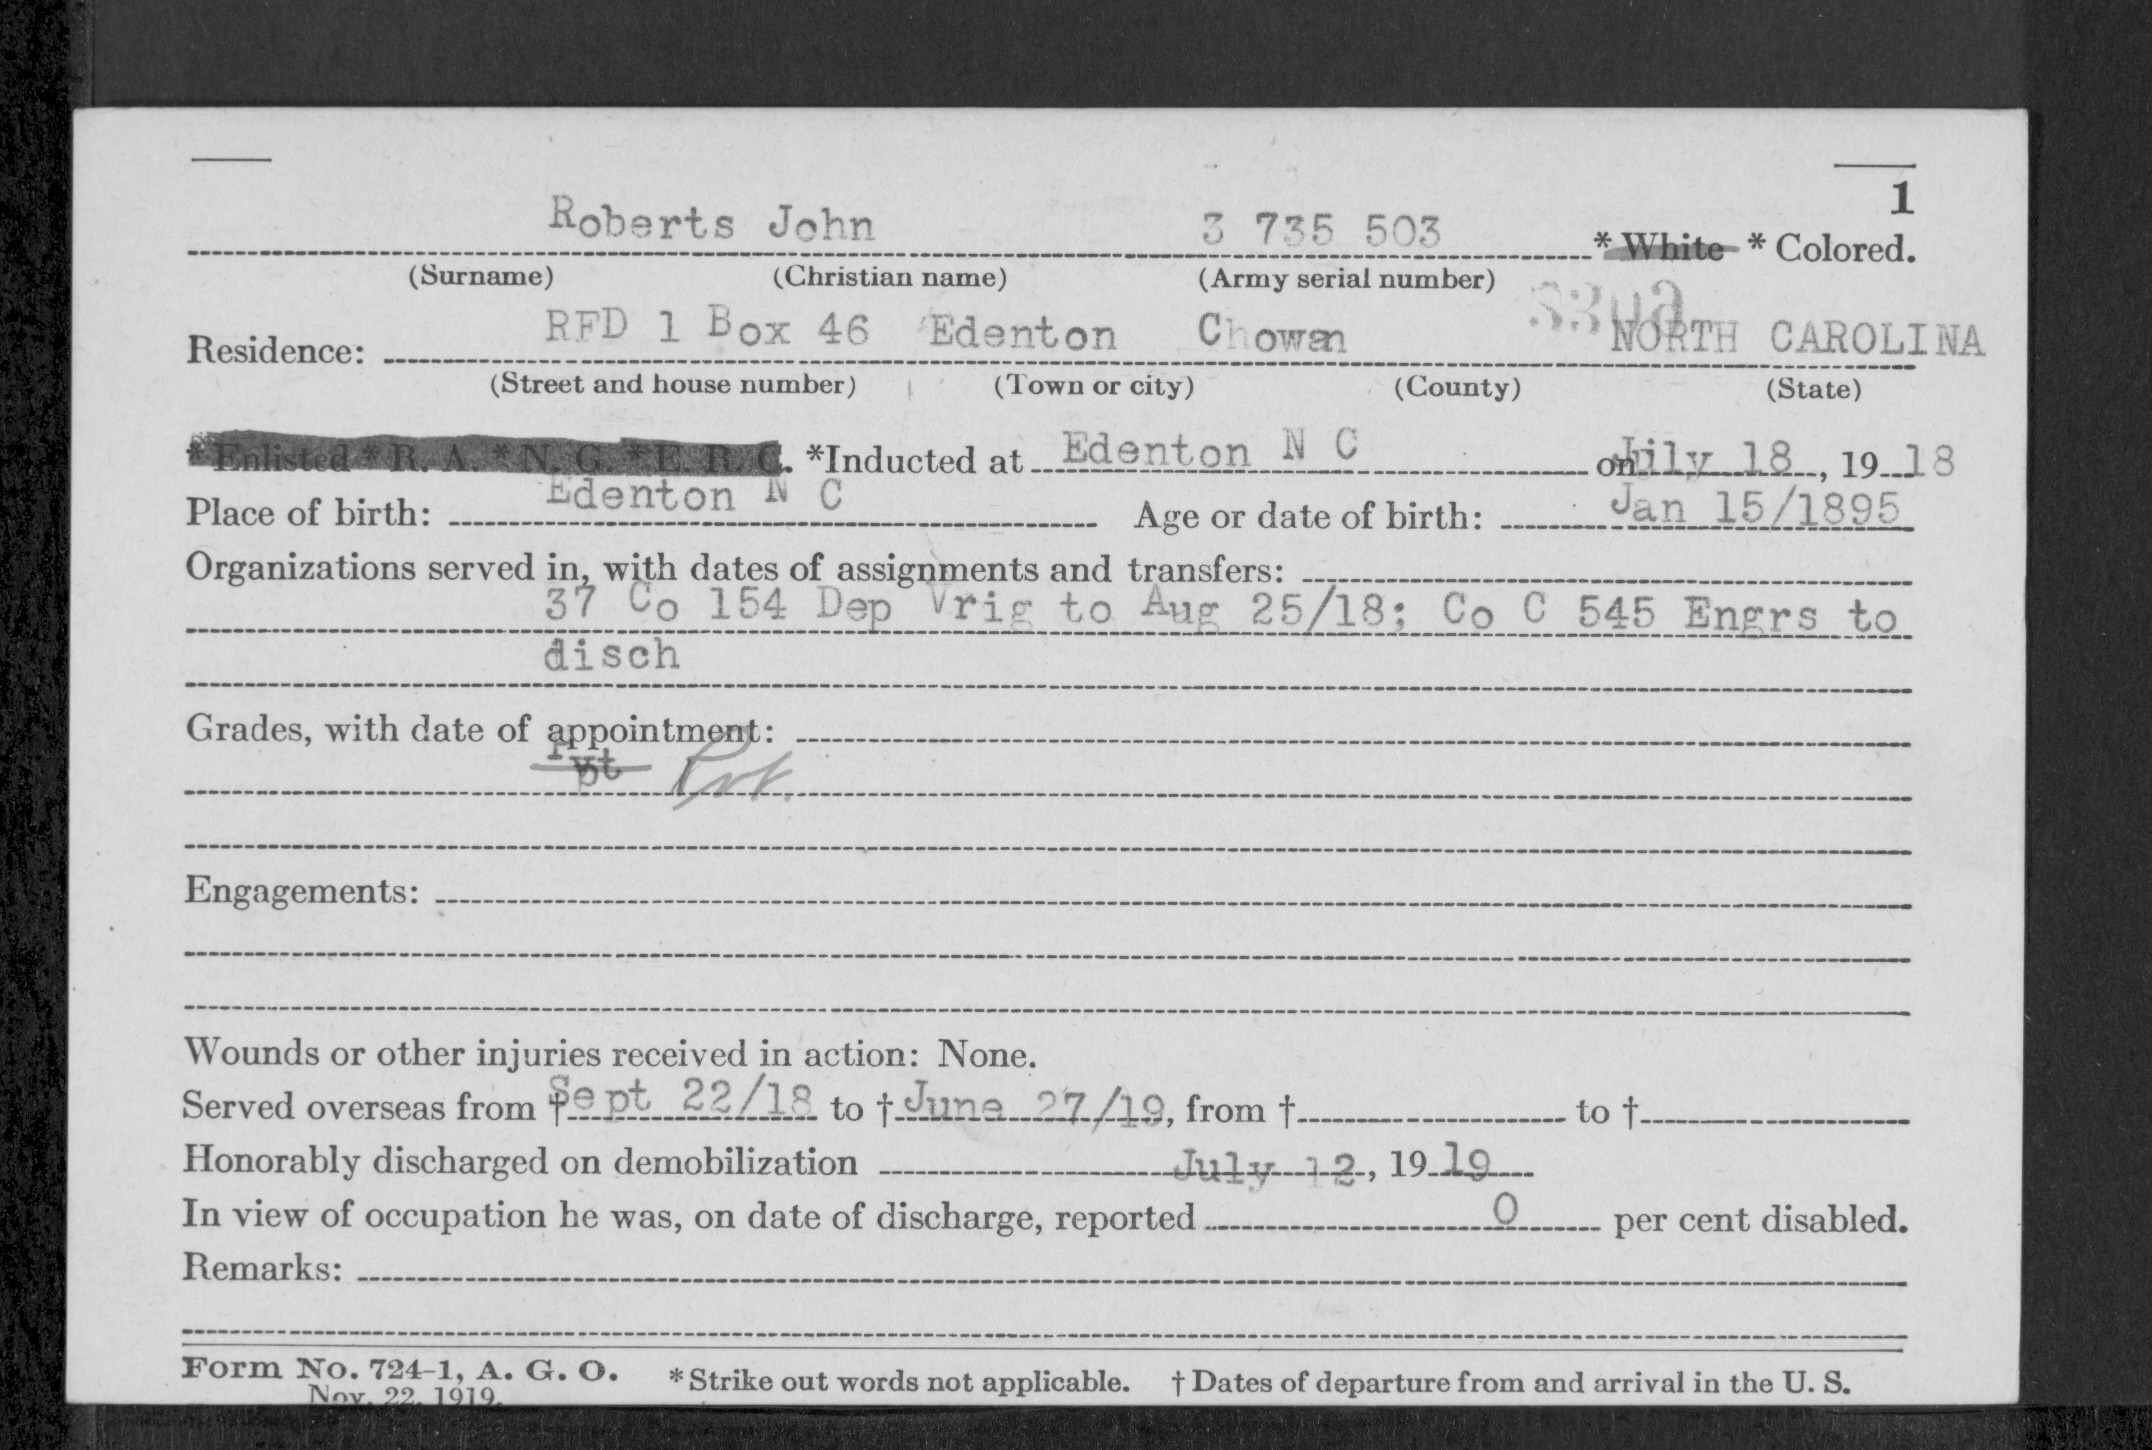 1
Roberts John 3 735 503 * White * Colored.
(Surname) (Christian name) (Army serial number)
Residence: RFD 1 Box 46 Edenton Chowan NORTH CAROLINA
(Street and house number) (Town or city) (County) (State)
* Enlisted * R. A. * N. G. * E. R. C. *Inducted at Edenton N C on July 18, 1918
Place of birth: Edenton N C Age or date of birth: Jan 15/1895
Organizations served in, with dates of assignments and transfers:
37 Co 154 Dep Vrig to Aug 25/18; Co C 545 Engrs to
disch
Grades, with date of appointment:
Pvt Pvt.
Engagements:
Wounds or other injuries received in action: None.
Served overseas from † Sept 22/18 to † June 27/19, from † to †
Honorably discharged on demobilization July 12, 1919
In view of occupation he was, on date of discharge, reported 0 per cent disabled.
Remarks:
Form No. 724-1, A. G. O. * Strike out words not applicable. † Dates of departure from and arrival in the U. S.
Nov. 22, 1919.